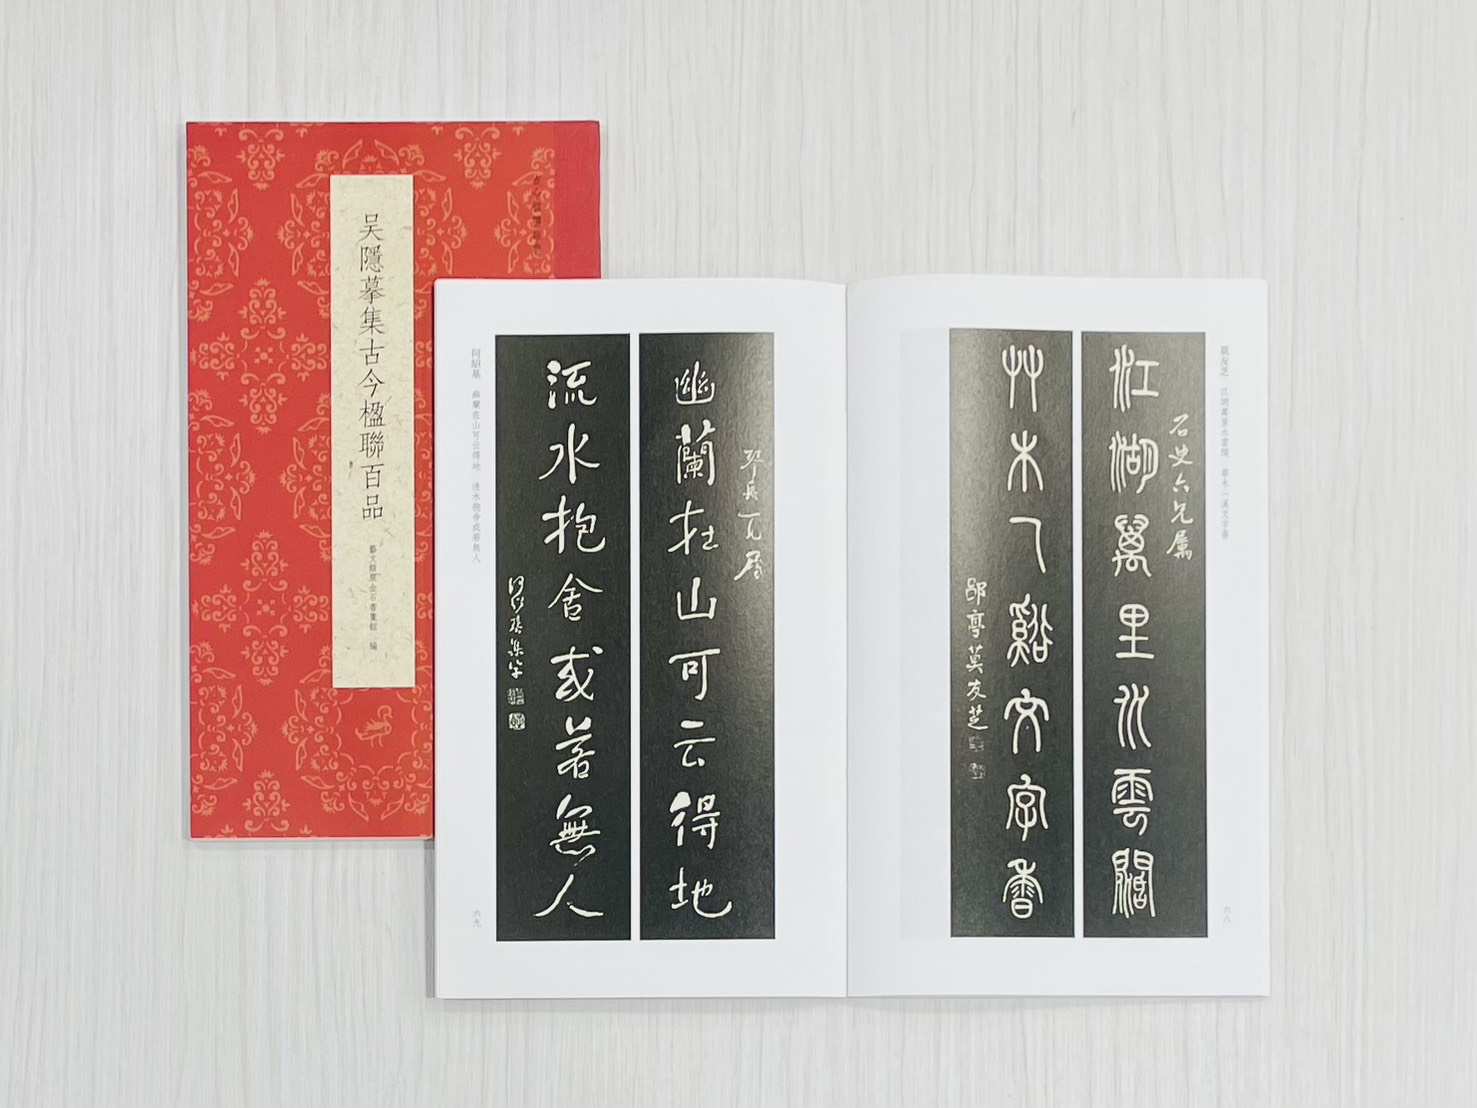 吴隱摹集古今楹聯百品
藝文類聚金石書畫館 編
莫友芝 江湖萬里水雲闊 草木一溪文字香
江湖萬里水雲闊
石史六兄属
艸木一谿文字香
郘亭莫友芝
六八
幽蘭在山可云得地
流水抱舍或若無人
何紹基 幽蘭在山可云得地 流水抱舍或若無人
六九